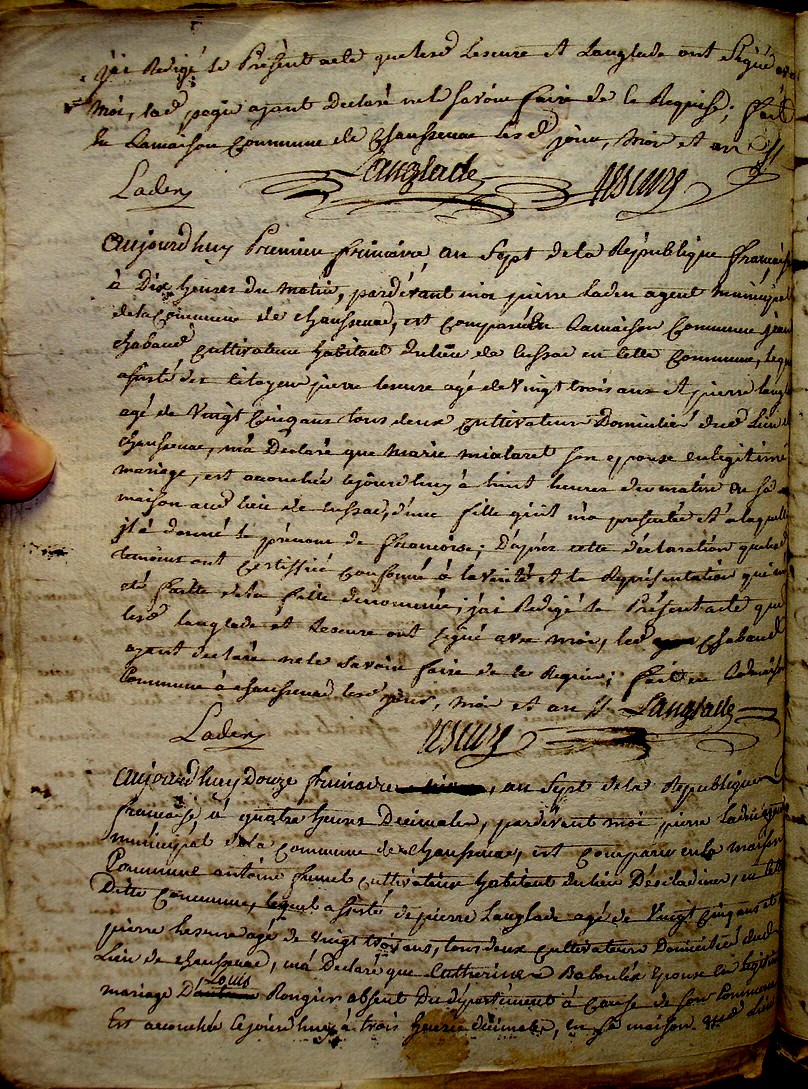 j'ai Redigé le Présent acte que lesd Lescure et Langlade ont Signé avec
moi, lad pagis ayant Declaré ne le savoir faire de ce Requise; fait
en Lamaison Commune de Chaussenac lesd jour, mois et an
Laden Langlade Lescure
aujourd'huy Premier frimaire, an Sept de la République française
à Dix heures du matin, pardevant moi pierre Laden agent municipal
de la Commune de chaussenac, est comparu En Lamaison Commune jean
chabaud cultivateur habitant du lieu de lussac en cette Commune, lequel
assisté des Citoyens pierre lescure agé de Vingt trois ans et pierre langlade
agé de Vingt Cinq ans tous deux cultivateurs Domiciliés dud Lieu de
chaussenac, m'a Declaré que marie mialaret son epouse en legitime
mariage, est accouchée cejourd'huy à huit heures du matin En sa
maison aud lieu de lussac, d'une fille qu'il m'a presentée et a laquelle
il a donné le prénom de francoise; D'après cette déclaration que les
temoins ont certiffiée conforme à la verité et la Représentation qui m'a
été faite de la fille denommée, j'ai Redigé le Présent acte que
lesd langlade et Lescure ont signé avec moi, led Chabaud
ayant declaré ne le savoir faire de ce Requis; fait en Lamaison
Commune à chaussenac lesd jour, mois et an Langlade
Laden Lescure
aujourd'huy Douze frimaire, an Sept de la Republique
francaise à quatre heures Decimales, pardevant moi pierre Laden agent
municipal de la Commune de chaussenac, est comparu en la maison
Commune antoine cultivateur habitant du lieu, en cette
Ditte Commune, lequel assisté de pierre Langlade agé de Vingt Cinq ans et
pierre lescure agé de Vingt trois ans, tous deux cultivateurs Domiciliés dud
Lieu de chaussenac, m'a Declaré que Catherine Baboulix Epouse en legitime
mariage De Louis Rongier absent du département à cause de son Commerce
Est accouchée cejourd'huy à trois heures decimales, en sa maison aud Lieu